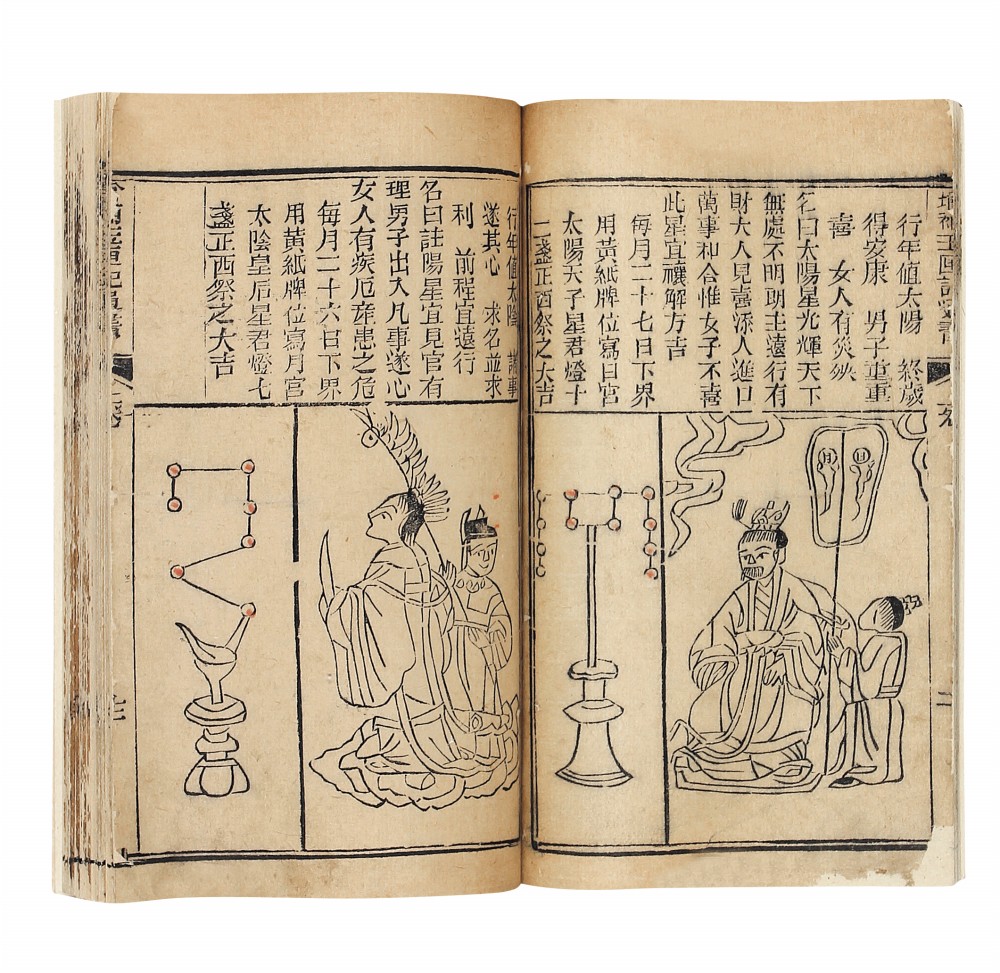 行年值太陽　終歲
得安康　男子重重
喜　女人有災殃
名曰太陽星光輝天下
無處不明朗主遠行有
財大人見喜添人進口
萬事和合惟女子不喜
此星宜禳解方吉
每月二十七日下界
用黃紙牌位寫日宮
太陽天子星君燈十
二盞正西祭之大吉
日
月
行年值太陰　諸事
遂其心　求名並求
利　前程宜遠行
名曰註陽星宜見官有
理男子出入凡事遂心
女人有疾厄產患之危
每月二十六日下界
用黃紙牌位寫月宮
太陰皇后星君燈七
盞正西祭之大吉